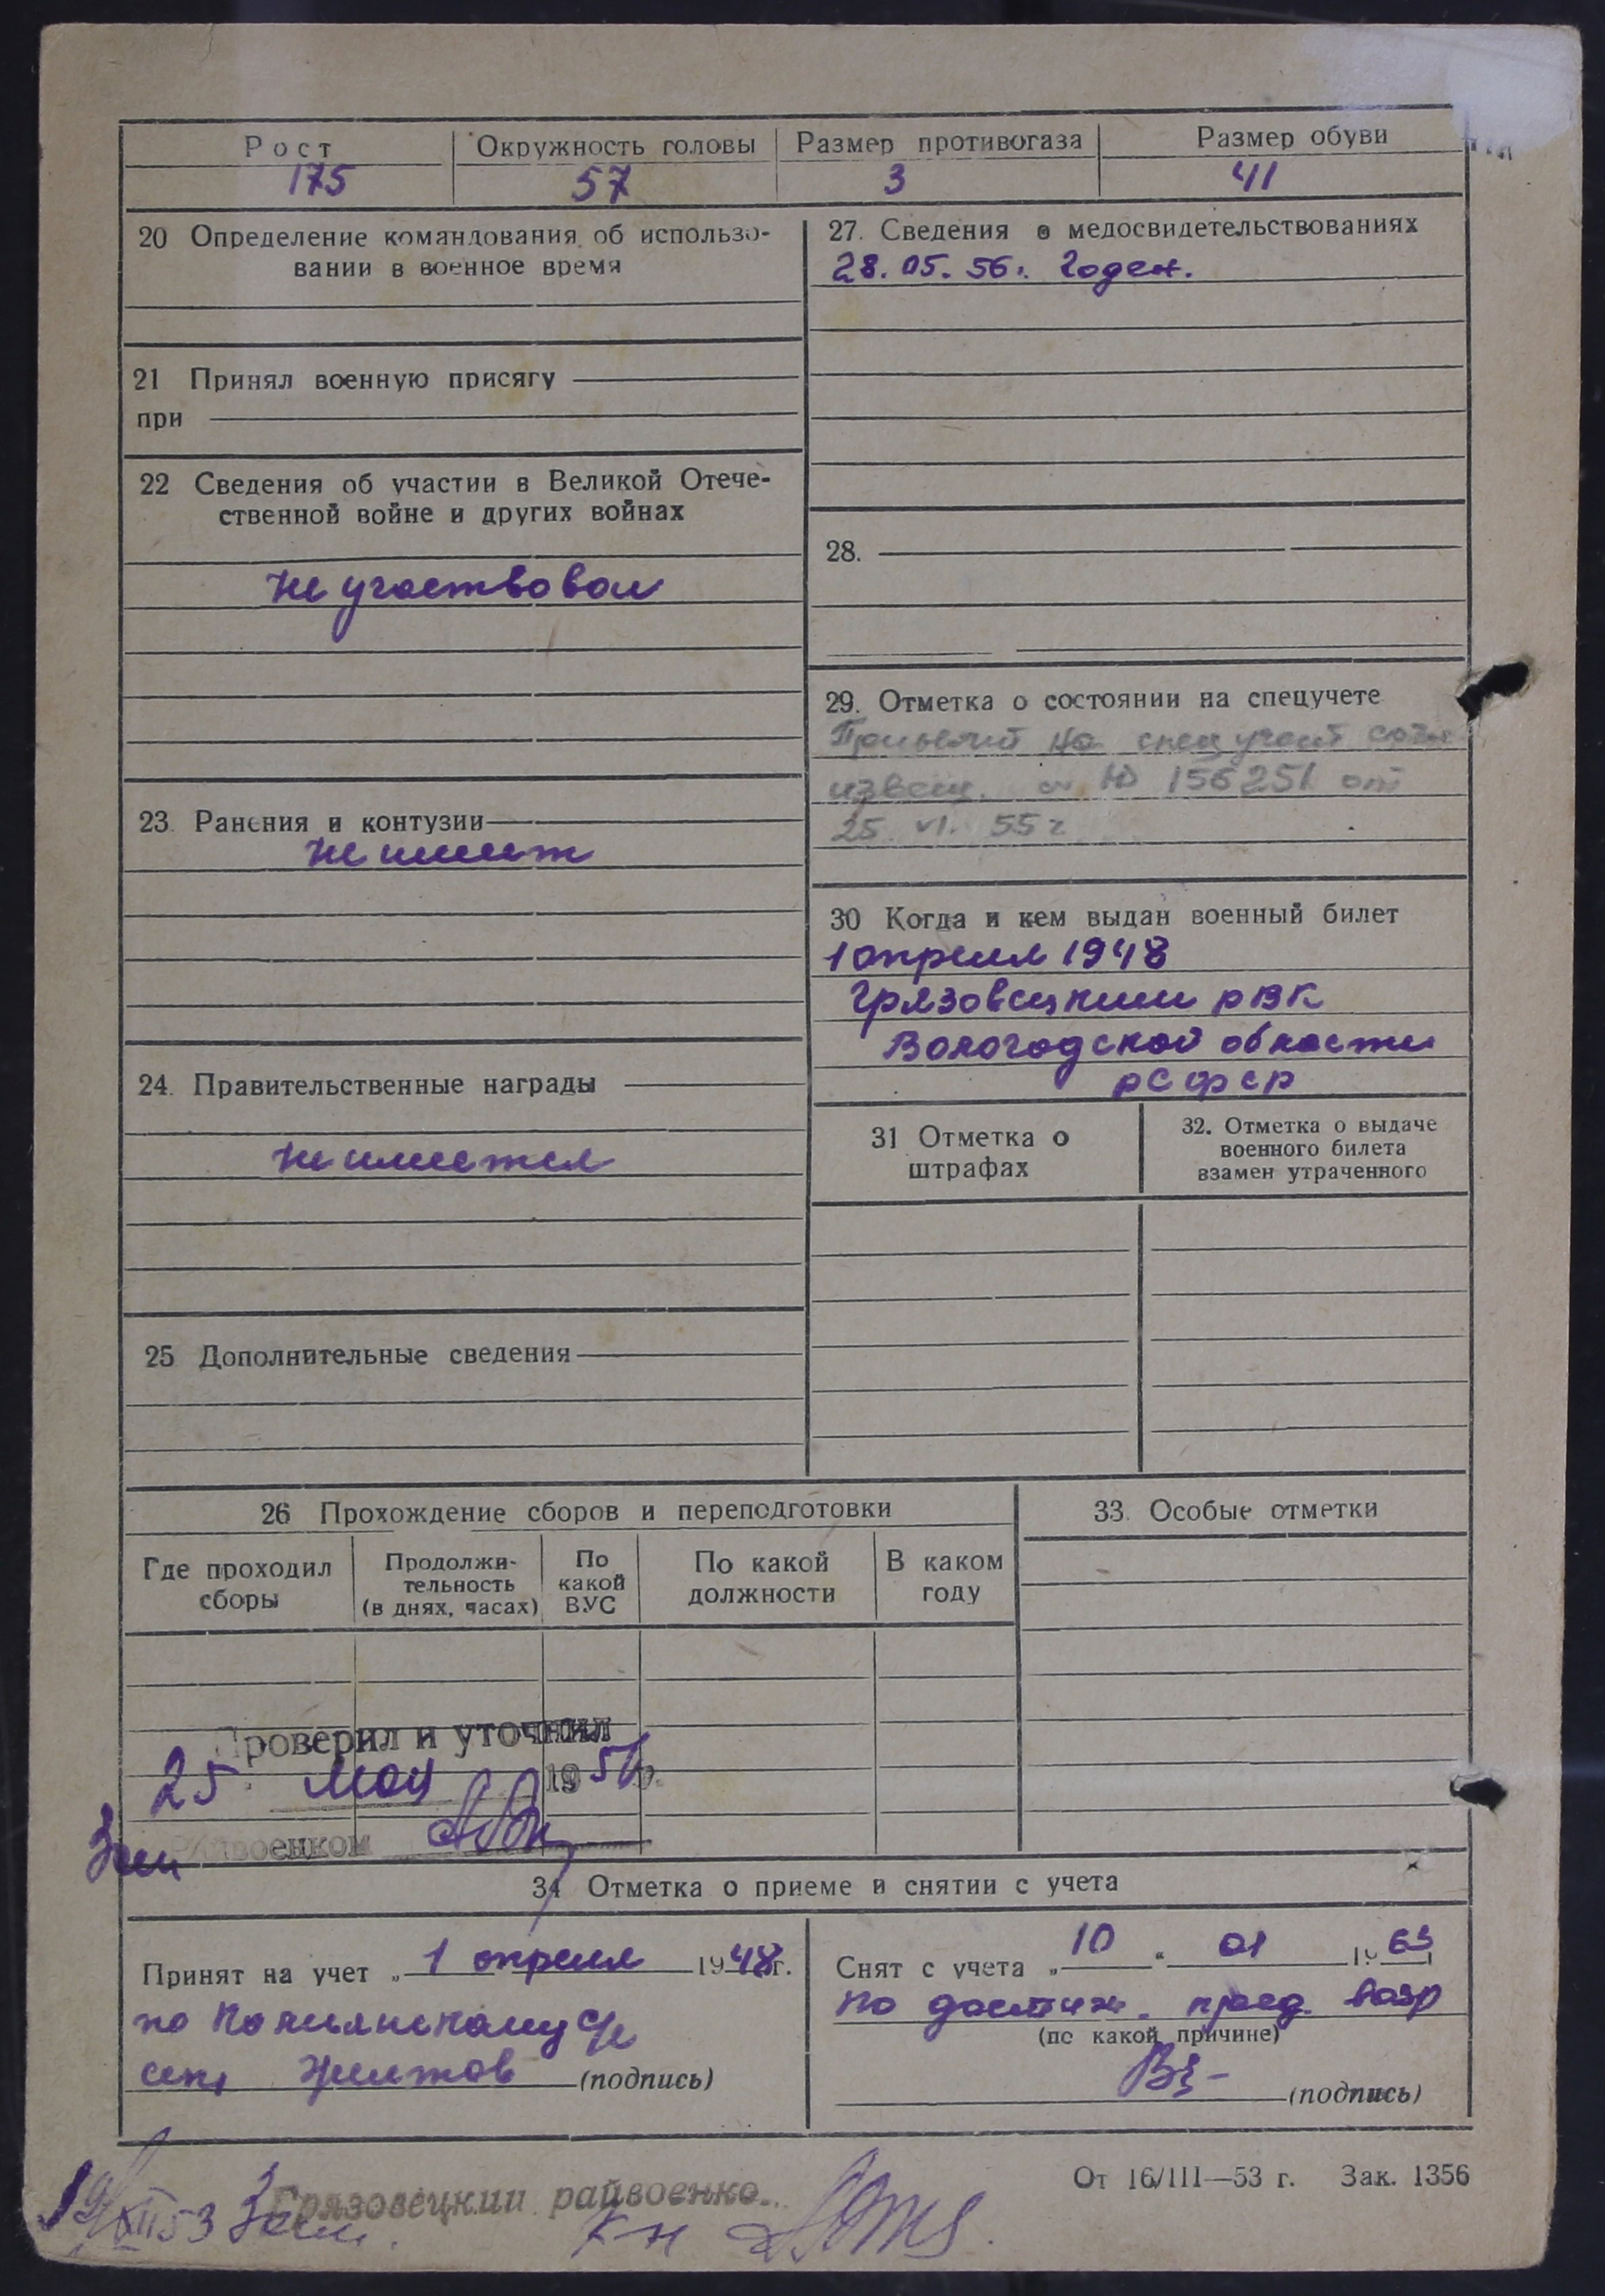 Рост Окружность головы Размер противогаза Размер обуви
175 57 3 41
20 Определение командования об использо-
вании в военное время
21 Принял военную присягу
при
22 Сведения об участии в Великой Отече-
ственной войне и других войнах
не участвовал
23. Ранения и контузии
не имеет
24. Правительственные награды
не имеется
25 Дополнительные сведения
27. Сведения о медосвидетельствованиях
28.05.56г. Годен.
28.
29. Отметка о состоянии на спецучете
на спец учет
извещ. 156251 от
25 VI. 55 г
30 Когда и кем выдан военный билет
1 апреля 1948
Грязовецким РВК
Вологодской области
РСФСР
31 Отметка о
штрафах
32. Отметка о выдаче
военного билета
взамен утраченного
26 Прохождение сборов и переподготовки
Где проходил
сборы
Продолжи-
тельность
(в днях, часах)
По
какой
ВУС
По какой
должности
В каком
году
33. Особые отметки
Проверил и уточнил
25 мая 195 г.
Зам Райвоенком
34 Отметка о приеме и снятии с учета
Принят на учет „ 1 апреля 1948г.
по с/с
(подпись)
Снят с учета „ 10 “ 01 19 63
по достиж. пред. возр
(по какой причине)
(подпись)
От 16/III—53 г. Зак. 1356
XII 53 Зам. Грязовецкий райвоенко
к-н